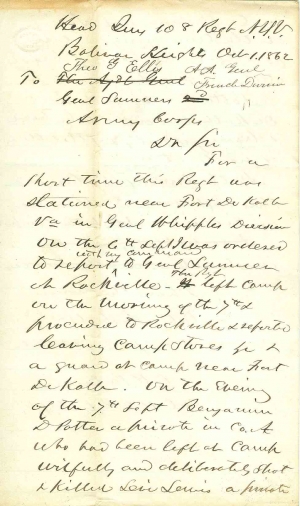 Head Qrs 108 Regt N.Y.V.
Bolivar Heights Oct 1, 1862
Theo G Ellis A.A. Genl
To The Adjt Genl French Division
Genl Sumners
Army Corps
Dr Sir
For a
short time this Regt was
stationed near Fort De Kalb
Va in Genl Whipples Division
On the 6th Sept I was ordered
with my command
to report to Genl Sumner
The Regt
at Rockville. left Camp
on the Morning of the 7th &
proceeded to Rockville & reported
leaving Camp Stores &c &
a guard at Camp near Fort
De Kalb. On the Evening
of the 7th Sept Benjamin
D Potter a private in Co A
who had been left at Camp
wilfully and deliberately shot
& Killed Levi Lewis a private